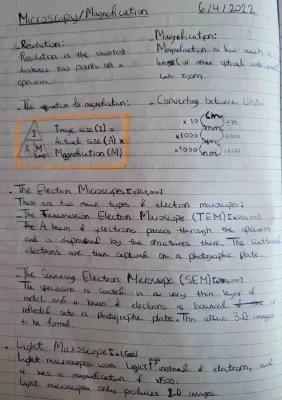 Microscopy/Magnification
6/4/2022
- Resolution:
Resolution is the shortest
distance two points on a
specimen
- Magnification:
Magnification is how much a
lens or other optical instrument
can zoom.
- The equation for magnification:
I
A M
Image size (I) =
Actual size (A) x
Magnification (M)
- Converting between Units:
cm
x 10 ÷10
mm
x1000 ÷1000
μm
x1000 ÷1000
nm
- The Electron Microscopes
There are two main types of electron microscopes:
- The Transmission Electron Microscope (TEM)
A beam of electrons passes through the specimen
and is dispersed by the structures there. The scattered
electrons are then captured on a photographic plate.
- The Scanning Electron Microscope (SEM)
The specimen is coated in a very thin layer of
metal and a beam of electrons is bounced or
reflected onto a photographic plate. This allows 3-D images
to be formed.
- Light Microscope [x1,500]
Light microscopes use light instead of electrons, and
it has a magnification of x1500.
Light microscopes only produces 2-D images.